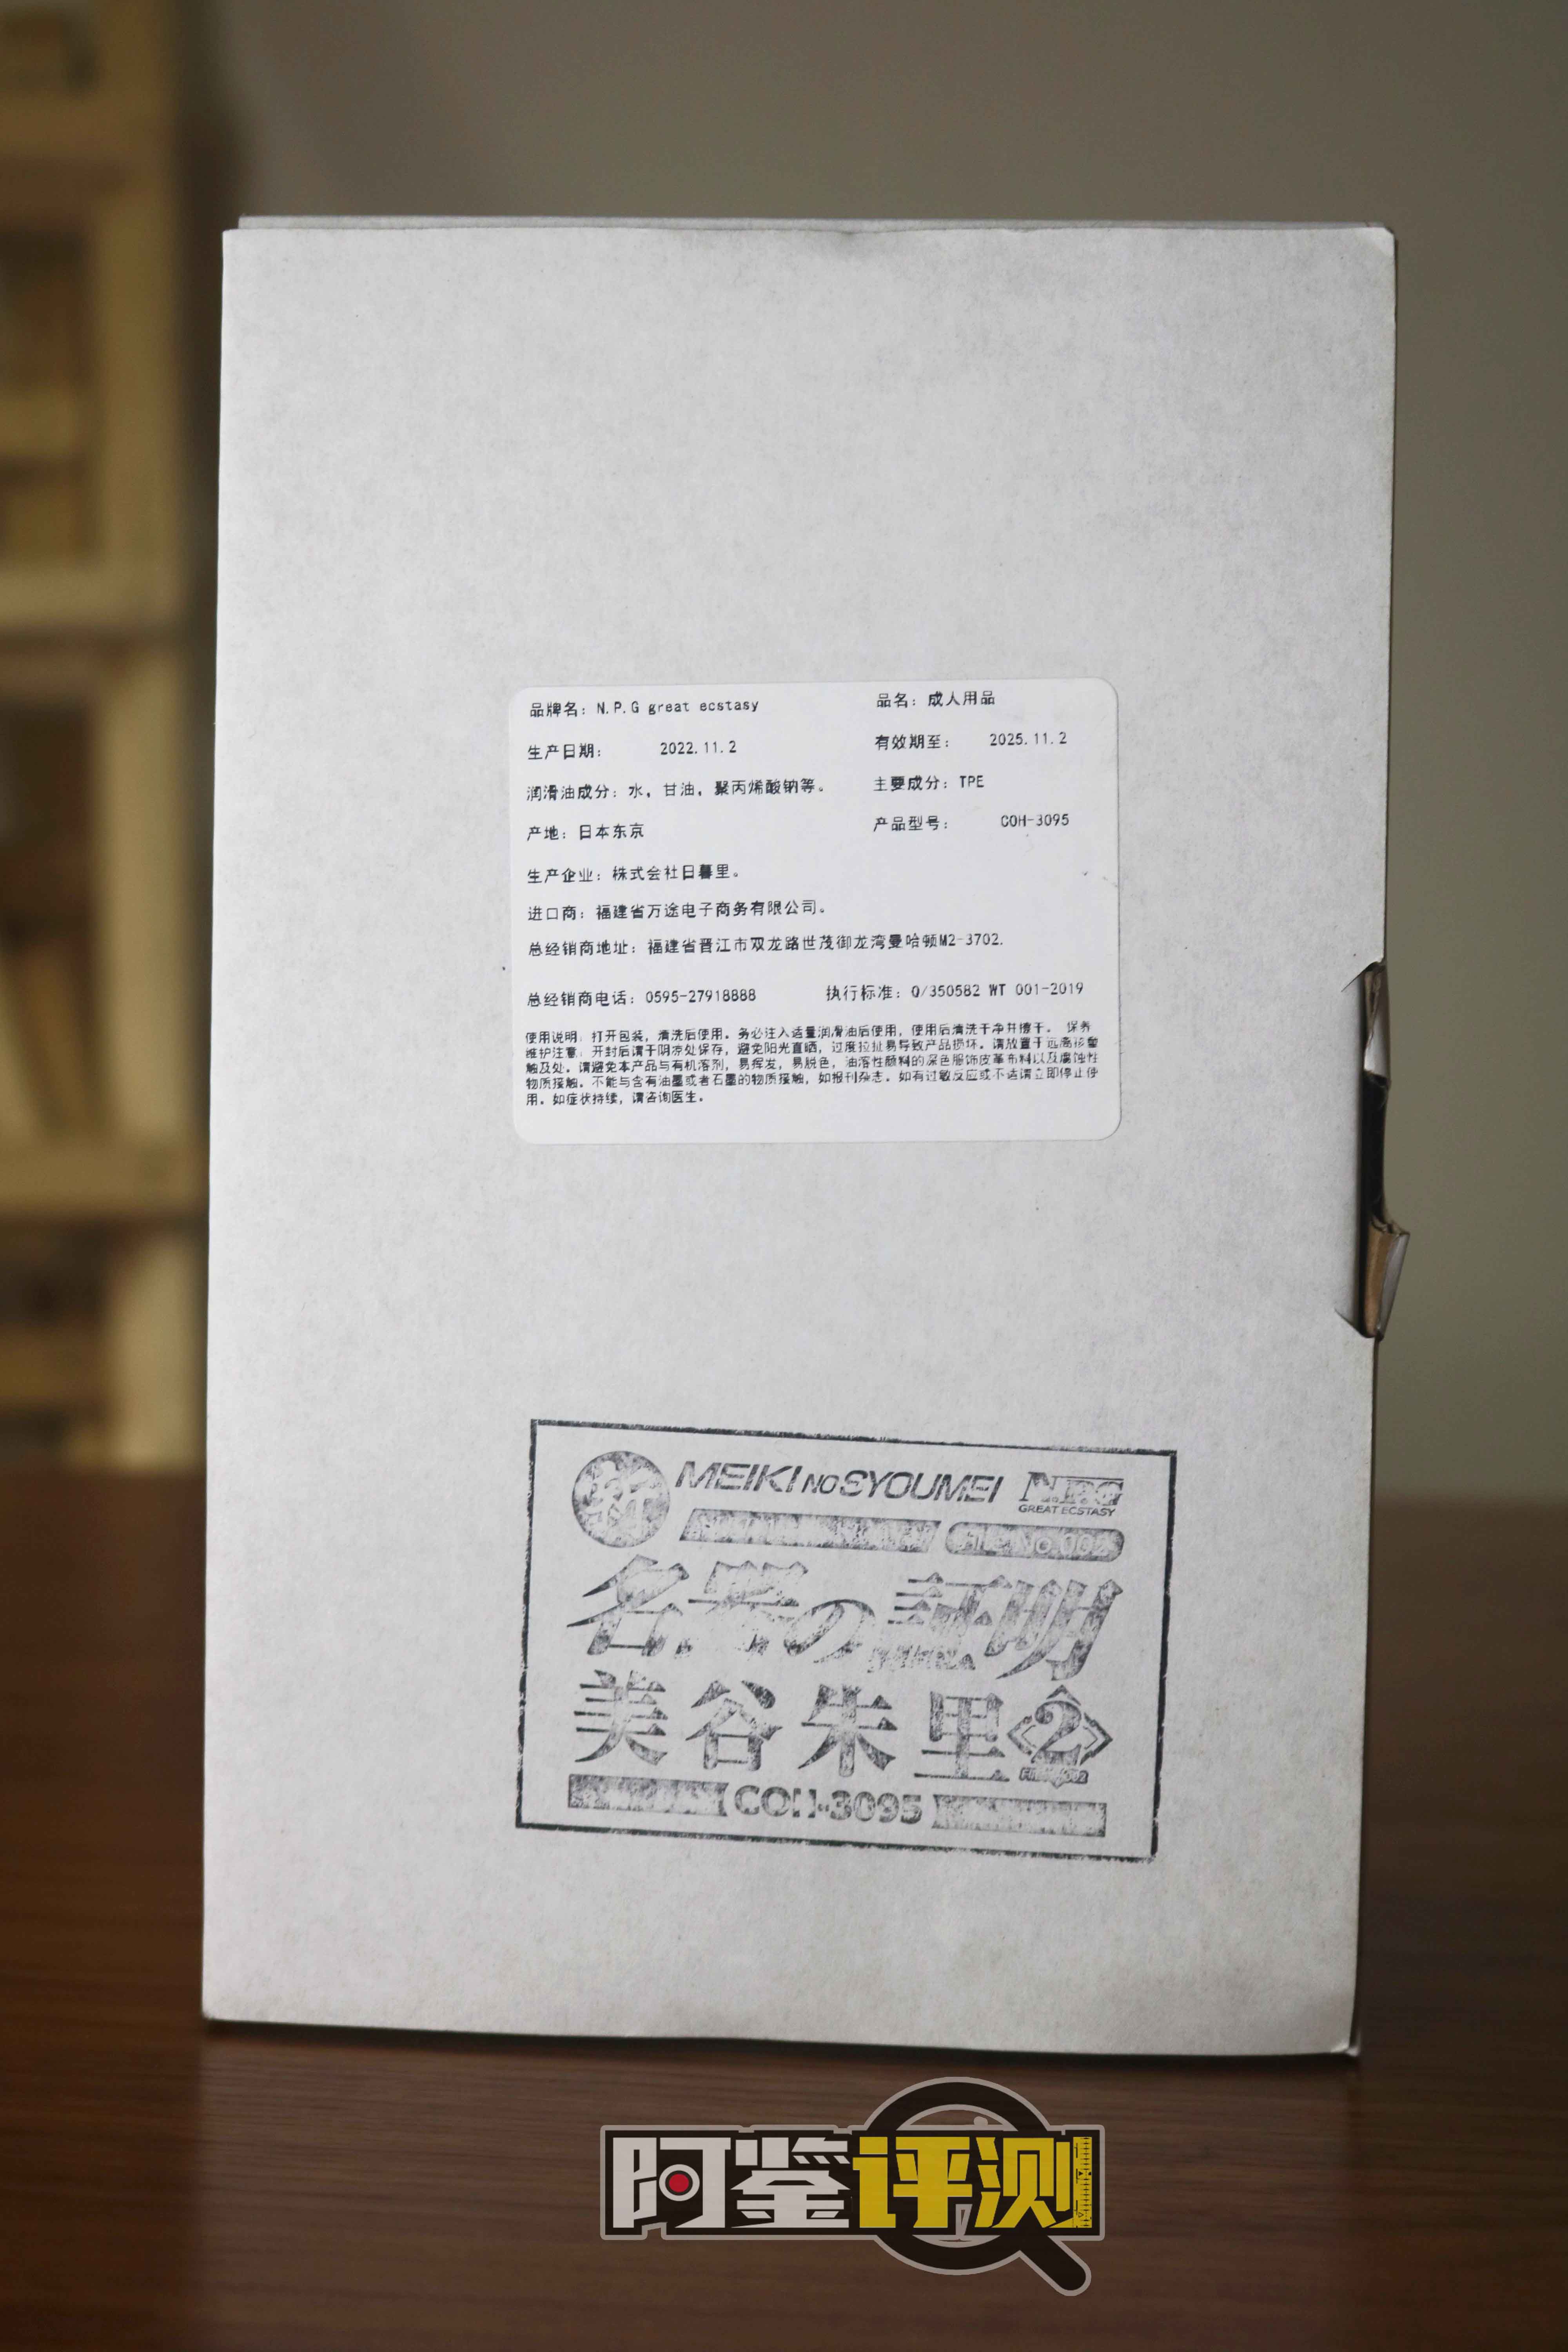 品牌名：N.P.G great ecstasy 品名：成人用品
生产日期： 2022.11.2 有效期至： 2025.11.2
润滑油成分：水，甘油，聚丙烯酸钠等。 主要成分：TPE
产地：日本东京 产品型号： COH-3095
生产企业：株式会社日暮里。
进口商：福建省万途电子商务有限公司。
总经销商地址：福建省晋江市双龙路世茂御龙湾曼哈顿M2-3702.
总经销商电话：0595-27918888 执行标准：Q/350582 WT 001-2019
使用说明：打开包装，清洗后使用。务必注入适量润滑油后使用，使用后清洗干净并擦干。 保养
维护注意：开封后请于阴凉处保存，避免阳光直晒，过度拉扯易导致产品损坏。请放置于远离孩童
触及处。请避免本产品与有机溶剂，易挥发，易脱色，油溶性颜料的深色服饰皮革布料以及腐蚀性
物质接触。不能与含有油墨或者石墨的物质接触，如报刊杂志。如有过敏反应或不适请立即停止使
用。如症状持续，请咨询医生。
MEIKI NO SYOUMEI NPG
GREAT ECSTASY
File No.002
名器の証明
美谷朱里 2
COH-3095
阿鉴评测